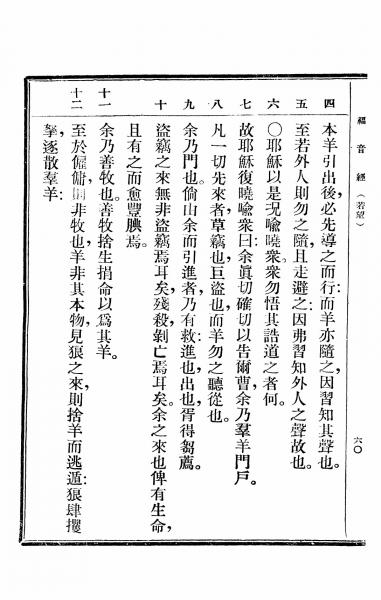 福音經 (若望) 六〇
四 本羊引出後,必先導之而行:而羊亦隨之,因習知其聲也。
五 至若外人則勿之隨,且走避之:因弗習知外人之聲故也。
六 〇耶穌以是況喻曉衆。衆勿悟其誥道之者何。
七 故耶穌復曉喻衆曰:余眞切確切以告爾曹,余乃羣羊門戶。
八 凡一切先來者,草竊也,巨盜也,而羊勿之聽從也。
九 余乃門也。倘由余而引進者,乃有救,進也,出也,胥得芻薦。
十 盜竊之來,無非盜竊焉耳矣,殘殺剝亡焉耳矣。余之來也,俾有生命,
且有之而愈豐腆焉。
十一 余乃善牧也。善牧捨生捐命以爲其羊。
十二 至於傭僱,則非牧也,羊非其本物,見狼之來,則捨羊而逃遁:狼肆攫
拏,逐散羣羊: